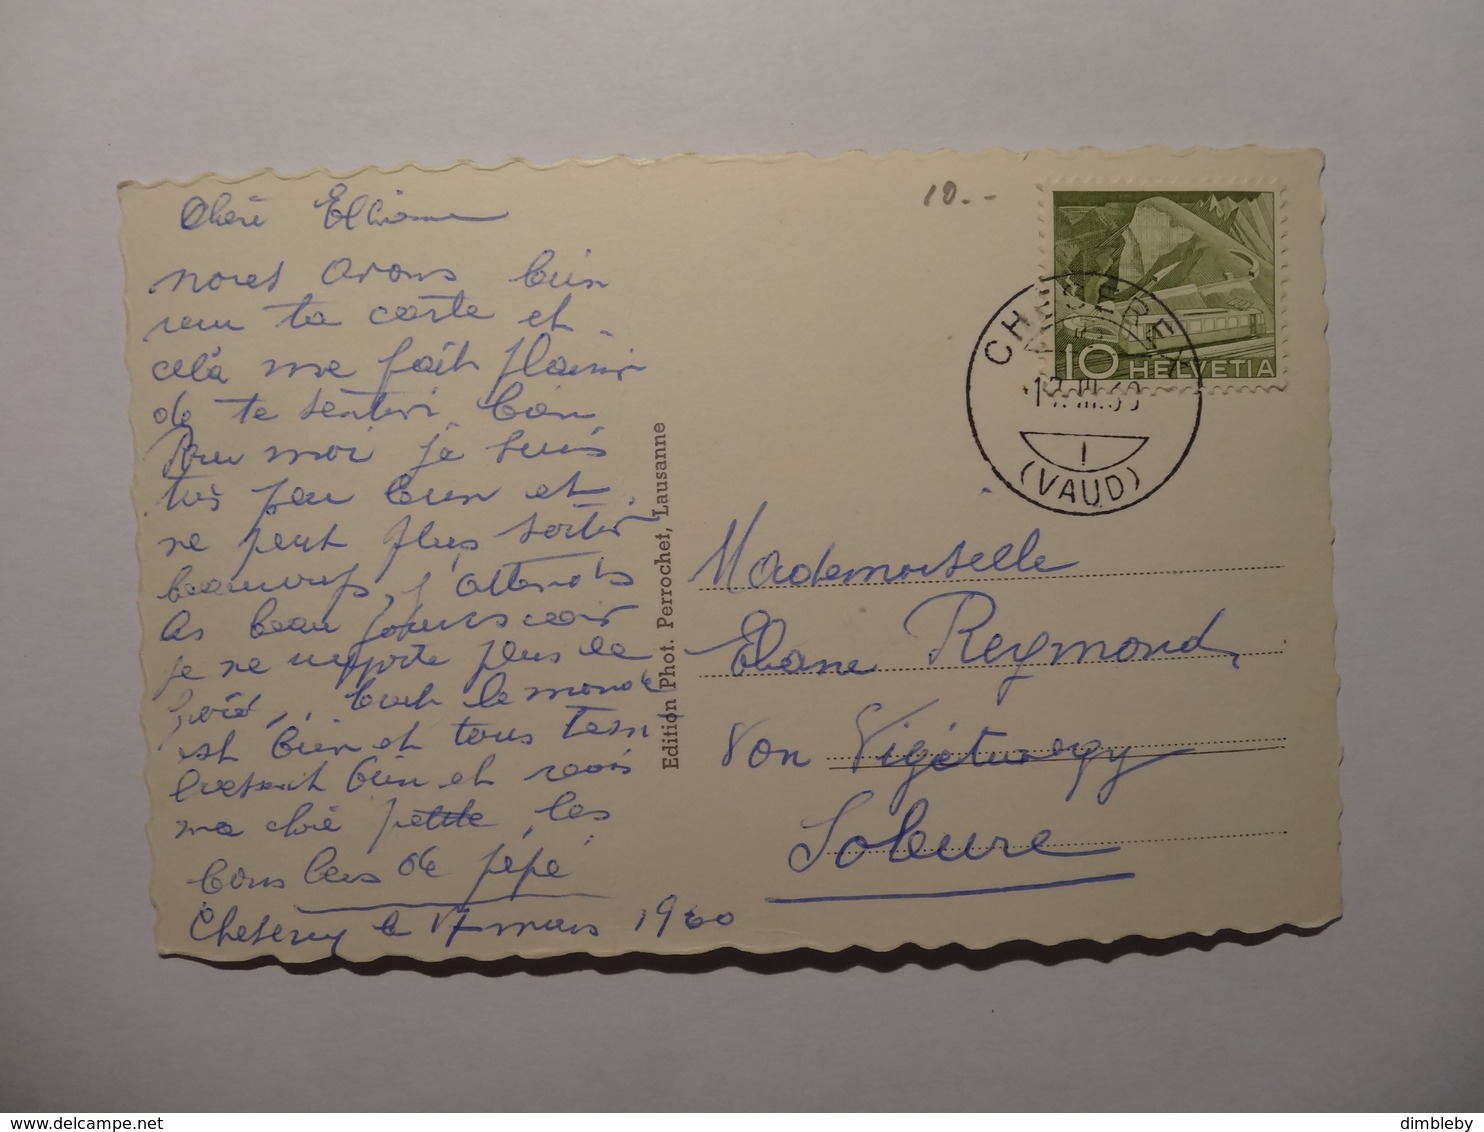 Chère Elliane
nous avons bien
reçu ta carte et
celà me fait plaisir
de te sentir bien
Pour moi je suis
très peu bien et
ne peut plus sortir
beaucoup, j'attends
les beau jours car
je ne supporte plus le
froid, tout le monde
est bien et tous t'em
brassent bien et reçois
ma chère petite, les
bons bers de pépé
Cheserey le 17 mars 1960
10.-
CHESEREX
17.III.60
1
(VAUD)
10 HELVETIA
Edition Phot. Perrochet, Lausanne
Mademoiselle
Eliane Reymond
Von
Soleure
dimbleby